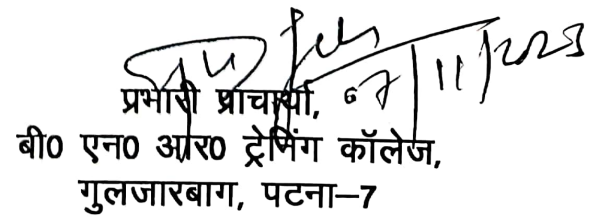 07/11/2023
प्रभारी प्राचार्या,
बी0 एन0 आर0 ट्रेनिंग कॉलेज,
गुलजारबाग, पटना–7